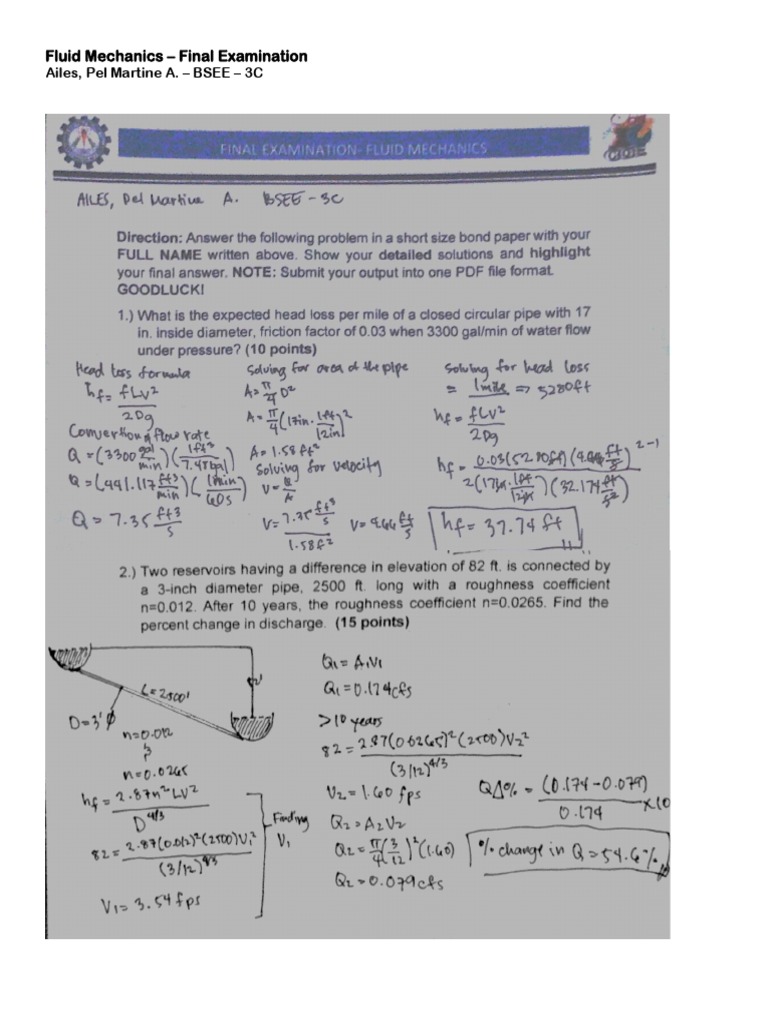 Fluid Mechanics – Final Examination
Ailes, Pel Martine A. – BSEE – 3C
FINAL EXAMINATION- FLUID MECHANICS
AILES, Pel Martine A. BSEE - 3C
Direction: Answer the following problem in a short size bond paper with your
FULL NAME written above. Show your detailed solutions and highlight
your final answer. NOTE: Submit your output into one PDF file format.
GOODLUCK!
1.) What is the expected head loss per mile of a closed circular pipe with 17
in. inside diameter, friction factor of 0.03 when 3300 gal/min of water flow
under pressure? (10 points)
Head loss formula
hf = fLv²/2Dg
Convertion of flow rate
Q = (3300 gal/min)(1ft³/7.48gal)
Q = (441.117 ft3/min)(1min/60s)
Q = 7.35 ft3/s
Solving for area of the pipe
A = π/4 D²
A = π/4 (17in. 1ft/12in)²
A = 1.58 ft²
Solving for velocity
V = Q/A
V = 7.35 ft³/s / 1.58ft²
V = 4.66 ft/s
Solving for head loss
= 1 mile => 5280ft
hf = fLv²/2Dg
hf = 0.03(5280ft)(4.66 ft/s)²⁻¹ / 2(17in. 1ft/12in)(32.174 ft/s²)
hf = 37.74 ft
2.) Two reservoirs having a difference in elevation of 82 ft. is connected by
a 3-inch diameter pipe, 2500 ft. long with a roughness coefficient
n=0.012. After 10 years, the roughness coefficient n=0.0265. Find the
percent change in discharge. (15 points)
L = 2500'
D = 3'Ø
n=0.012
n=0.0265
hf = 2.87n²LV²/D^4/3
82 = 2.87(0.012)²(2500)V₁²/(3/12)^4/3
V₁ = 3.54 fps
Finding
V₁
Q₁ = A₁V₁
Q₁ = 0.174cfs
>10 years
82 = 2.87(0.0265)²(2500)V₂²/(3/12)^4/3
V₂ = 1.60 fps
Q₂ = A₂V₂
Q₂ = π/4(3/12)²(1.60)
Q₂ = 0.079cfs
QΔ% = (0.174 - 0.079)/0.174 x10
% change in Q = 54.6%